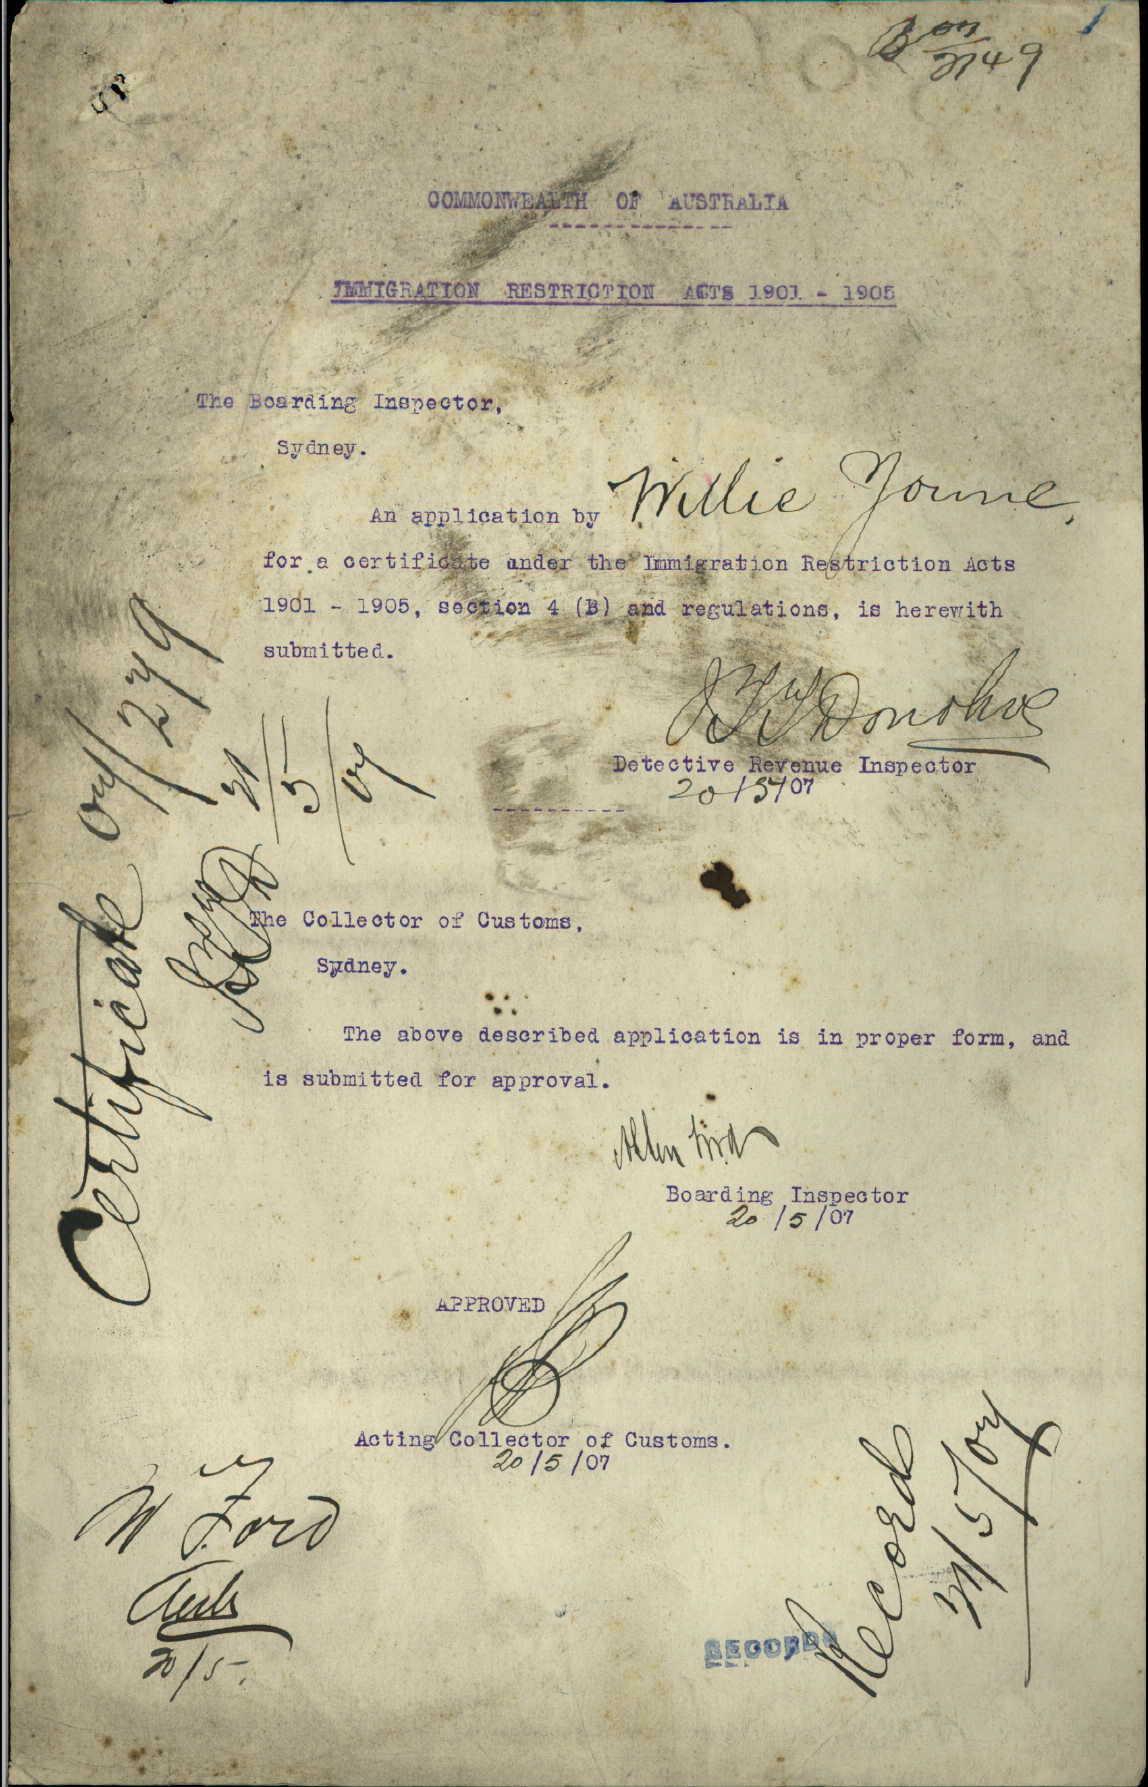 B 07/3149
COMMONWEALTH OF AUSTRALIA
IMMIGRATION RESTRICTION ACTS 1901 - 1905
The Boarding Inspector,
Sydney.
An application by Willie Youne,
for a certificate under the Immigration Restriction Acts
1901 - 1905, section 4 (B) and regulations, is herewith
submitted.
Donohoe
Detective Revenue Inspector
20/5/07
Certificate 07/279
21/5/07
The Collector of Customs,
Sydney.
The above described application is in proper form, and
is submitted for approval.
Boarding Inspector
20/5/07
APPROVED
Acting Collector of Customs.
20/5/07
Mr Ford
20/5.
RECORDS
Record
31/5/07